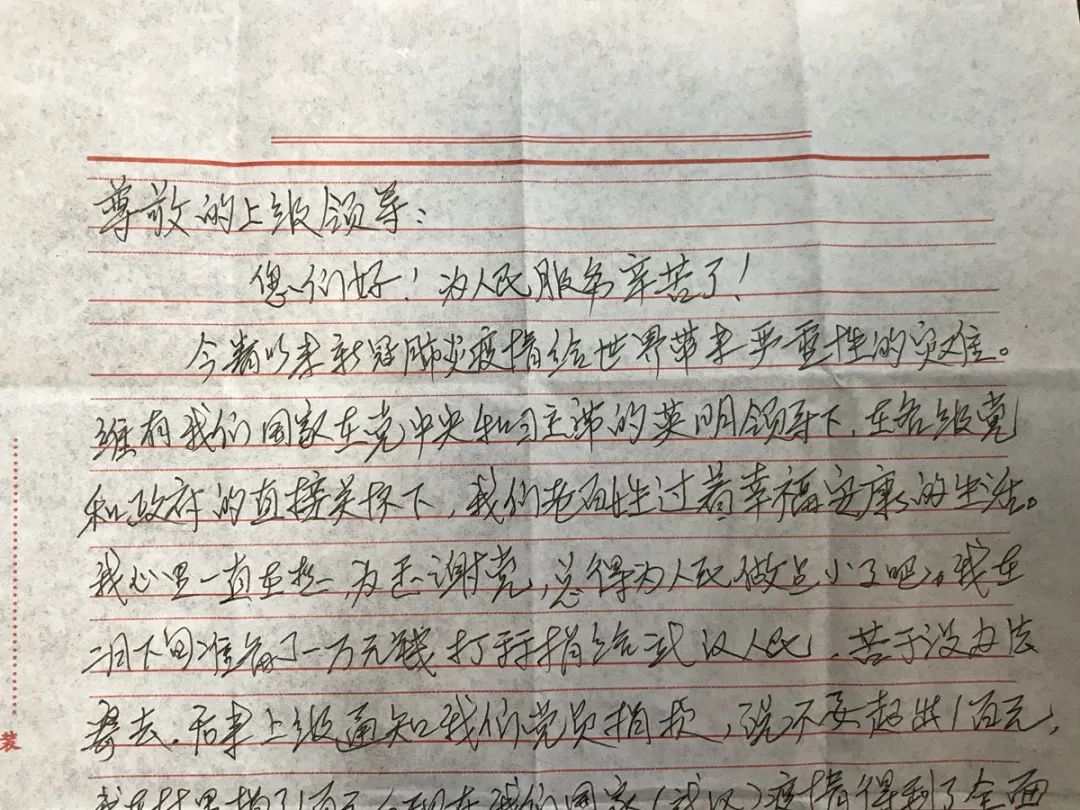 尊敬的上级领导:
您们好!为人民服务辛苦了!
今年以来新冠肺炎疫情给世界带来严重性的灾难。
唯有我们国家在党中央和习主席的英明领导下,在各级党
和政府的直接关怀下,我们老百姓过着幸福安康的生活。
我心里一直在想,为感谢党,总得为人民做点小事吧。我在
二月下旬准备了一万元钱打算捐给武汉人民,苦于没办法
寄去。后来上级通知我们党员捐款,说不要超出1百元,
我在村里捐了1百元。现在我们国家(武汉)疫情得到了全面
装